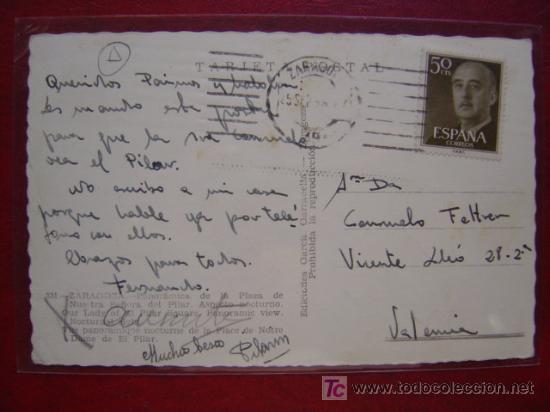 TARJETA POSTAL
ZARAGOZA
50 CTS
ESPAÑA
CORREOS
Queridos Primos y
les mando esta postal
para que la Sra Consuelo
vea el Pilar.
No escribo a mi casa
porque hablé ya por telé
fono con ellos.
Abrazos para todos.
Fernando.
ZARAGOZA.—Panorámica de la Plaza de
Nuestra Señora del Pilar. Aspecto nocturno.
Our Lady of El Pilar Square. Panoramic view.
Nocturne
Vue panoramique nocturne de la Place de Notre
Dame de El Pilar.
Muchos besos
Pilarín
Ediciones García Garrabella
Prohibida la reproducción
Consuelo
Vicente Lleó 28-2ª
Valencia
TC www.todocoleccion.net